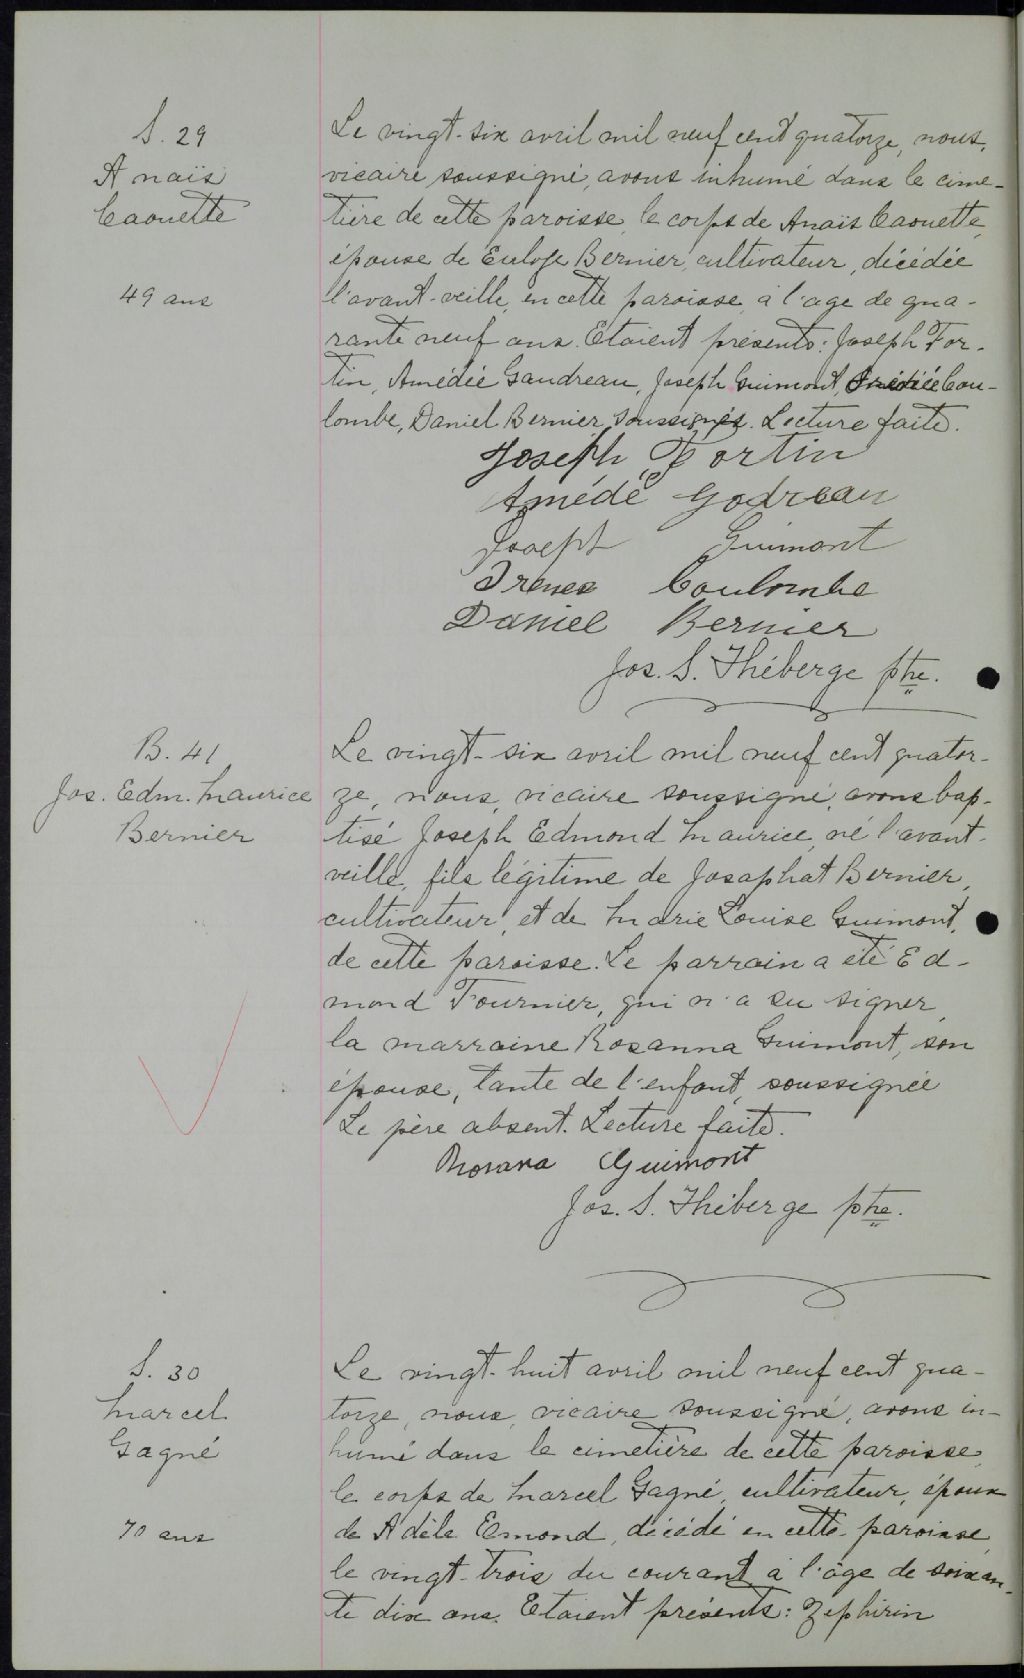 S. 29
Anaïs
Caouette
49 ans
Le vingt-six avril mil neuf cent quatorze, nous,
vicaire soussigné, avons inhumé dans le cime-
tière de cette paroisse, le corps de Anaïs Caouette,
épouse de Euloge Bernier, cultivateur, décédée
l'avant-veille, en cette paroisse à l'age de qua-
rante neuf ans. Etaient présents: Joseph For-
tin, Amédée Gaudreau, Joseph Guimont, Cou-
lombe, Daniel Bernier, soussignés. Lecture faite.
Joseph Fortin
Amédé Godreau
Joseph Guimont
Irenee Coulombe
Daniel Bernier
Jos. S. Théberge ptre.
B. 41
Jos. Edm. Maurice
Bernier
Le vingt-six avril mil neuf cent quator-
ze, nous, vicaire soussigné, avons bap-
tisé Joseph Edmond Maurice, né l'avant-
veille, fils légitime de Josaphat Bernier,
cultivateur, et de Marie Louise Guimont,
de cette paroisse. Le parrain a été Ed-
mond Fournier, qui n'a su signer,
la marraine Rosanna Guimont, son
épouse, tante de l'enfant, soussignée
Le père absent. Lecture faite.
Rosana Guimont
Jos. S. Théberge ptre.
S. 30
Marcel
Gagné
70 ans
Le vingt-huit avril mil neuf cent qua-
torze, nous, vicaire soussigné, avons in-
humé dans le cimetière de cette paroisse,
le corps de Marcel Gagné, cultivateur, époux
de Adèle Emond, décédé en cette paroisse,
le vingt-trois du courant à l'âge de soixan-
te dix ans. Etaient présents: Zephirin